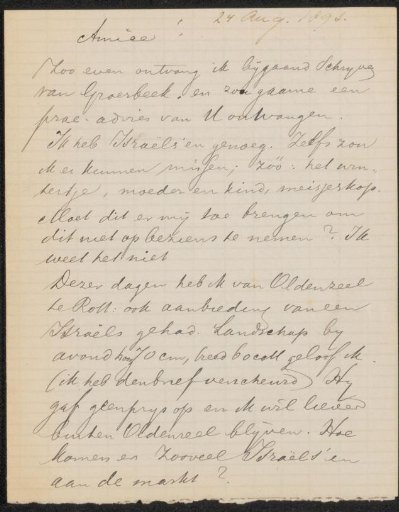 24 Aug. 1893.
Amice!
Zoo even ontvang ik bijgaand Schrijven
van Groesbeek. en zou gaarne een
prae-advies van U ontvangen.
Ik heb Israëls'en genoeg. Zelfs zou
ik er kunnen missen; zóó: het win-
tertje, moeder en kind, meisjeskop.
Moet dit er mij toe brengen om
dit niet op beziens te nemen? Ik
weet het niet
Dezer dagen heb ik van Oldenzeel
te Rott: ook aanbieding van een
Israëls gehad. Landschap bij
avond hoog 70 cm, breed 60 cM geloof ik
(ik heb den brief verscheurd) Hij
gaf geen prijs op en ik wil liever
buiten Oldenzeel blijven. Hoe
komen er zooveel Israëls'en
aan de markt?